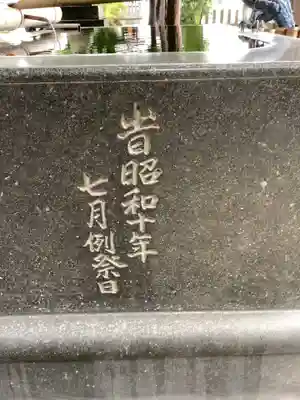 旹昭和十年
七月例祭日